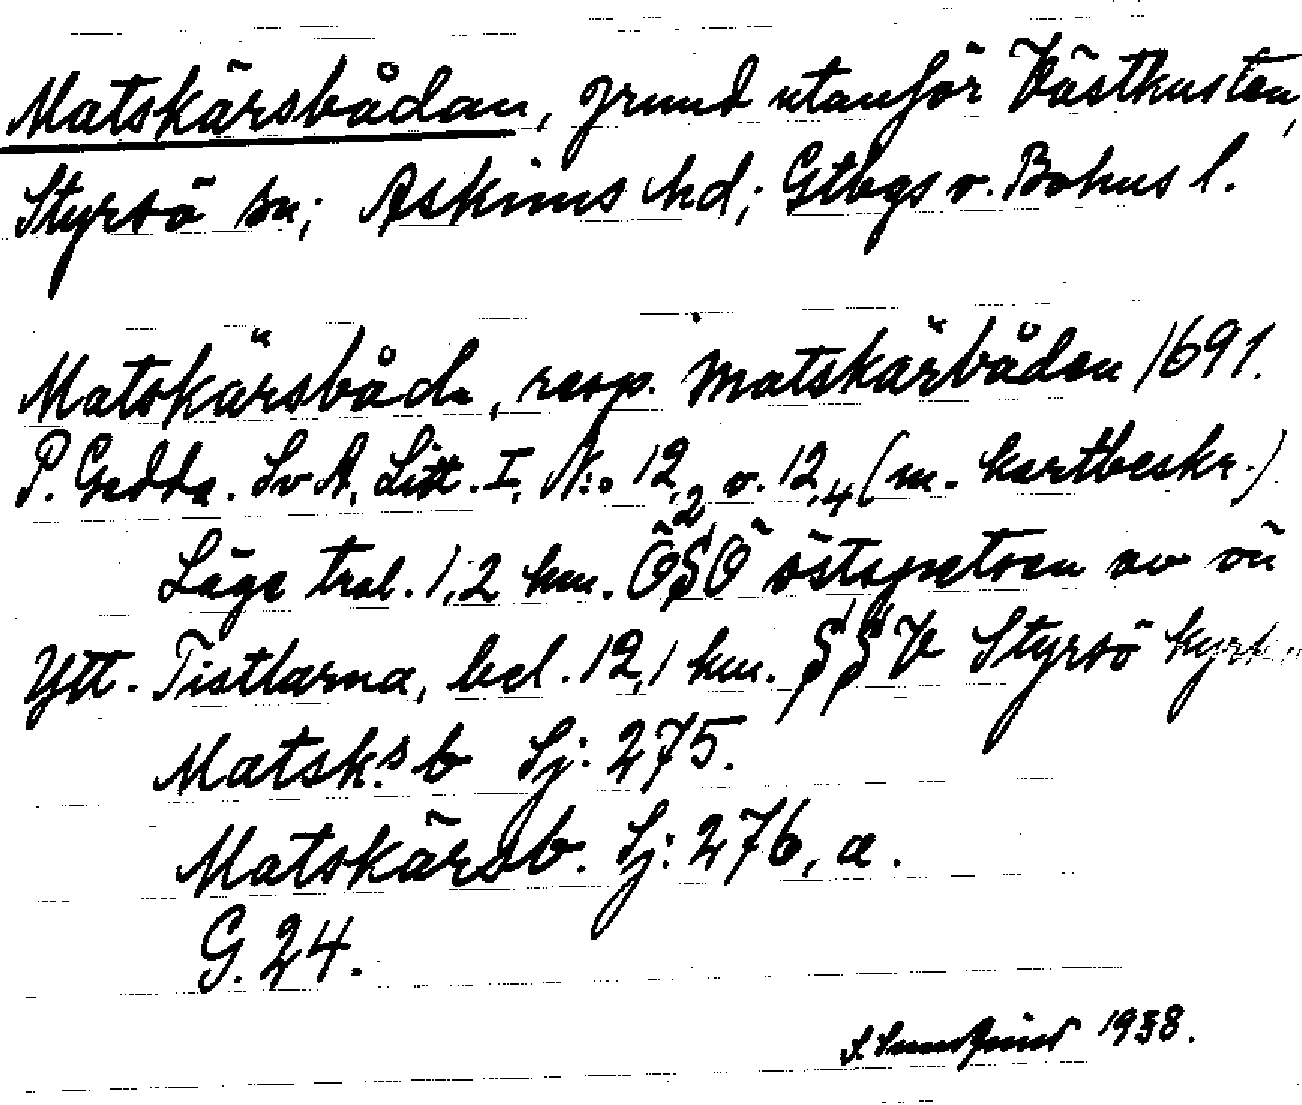 Matskärsbådan, grund utanför Västkusten,
Styrsö sn; Askims hd; Gtbgs o. Bohus l.
Matskärsbåda, resp. Matskärbåden 1691.
P. Gedda. Sv A, Litt. I, N:o 12,2 o. 12,4 (m. kartbeskr.)
Läge tral. 1,2 km. ÖSÖ östspetsen av ön
Ytt. Tistlarna, bel. 12,1 km. SSV Styrsö kyrka
Matsk:s b Sj: 275.
Matskärsb. Sj: 276, a.
G. 24.
S. Sundqvist 1938.